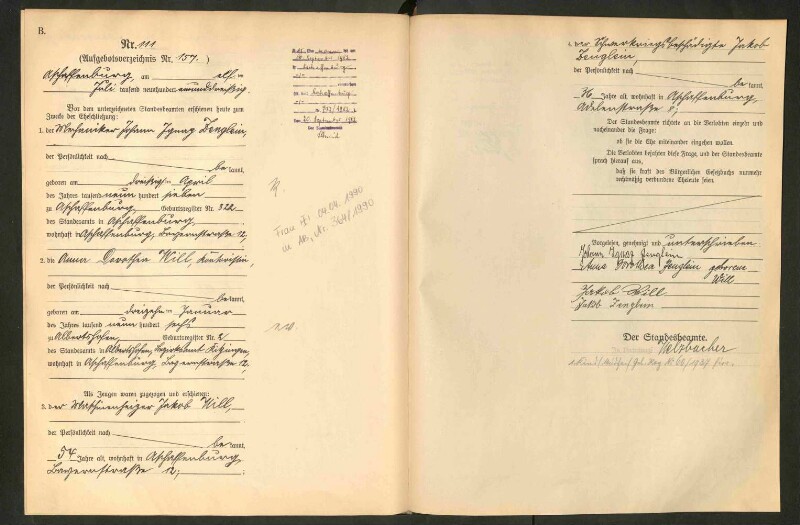 B.
Nr. 111
(Aufgebotsverzeichnis Nr. 157.)
Aschaffenburg, am elf-
Juli tausend neunhundert neununddreißig.
Vor dem unterzeichneten Standesbeamten erschienen heute zum
Zweck der Eheschließung:
1. der Mechaniker Johann Ignaz Zenglein,
der Persönlichkeit nach
be kannt,
geboren am dreißig- ten April
des Jahres tausend neun hundert sieben
zu Aschaffenburg, Geburtsregister Nr. 322
des Standesamts in Aschaffenburg,
wohnhaft in Aschaffenburg, Bayernstraße 12,
2. die Anna Dorothea Will, Kontoristin,
der Persönlichkeit nach
be kannt,
geboren am dreizehn- ten Januar
des Jahres tausend neun hundert sechs
zu Albertshofen, Geburtsregister Nr. 2
des Standesamts in Albertshofen, Bezirksamt Kitzingen,
wohnhaft in Aschaffenburg, Bayernstraße 12.
Als Zeugen waren zugezogen und erschienen:
3. der Maschinenheizer Jakob Will,
der Persönlichkeit nach
be kannt,
54 Jahre alt, wohnhaft in Aschaffenburg,
Bayernstraße 12;
September 1912
Aschaffenburg
Frau †: 04.04.1990
Nr. 364/1990
4. der Schwerkriegsbeschädigte Jakob
Zenglein,
der Persönlichkeit nach
be kannt,
36 Jahre alt, wohnhaft in Aschaffenburg,
Adelenstraße 8;
Der Standesbeamte richtete an die Verlobten einzeln und
nacheinander die Frage:
ob sie die Ehe miteinander eingehen wollen.
Die Verlobten bejahten diese Frage, und der Standesbeamte
sprach hierauf aus,
daß sie kraft des Bürgerlichen Gesetzbuchs nunmehr
rechtmäßig verbundene Eheleute seien.
Vorgelesen, genehmigt und unterschrieben
Johann Ignaz Zenglein
Anna Dorothea Zenglein geborene
Will
Jakob Will
Jakob Zenglein
Der Standesbeamte.
Walzbacher